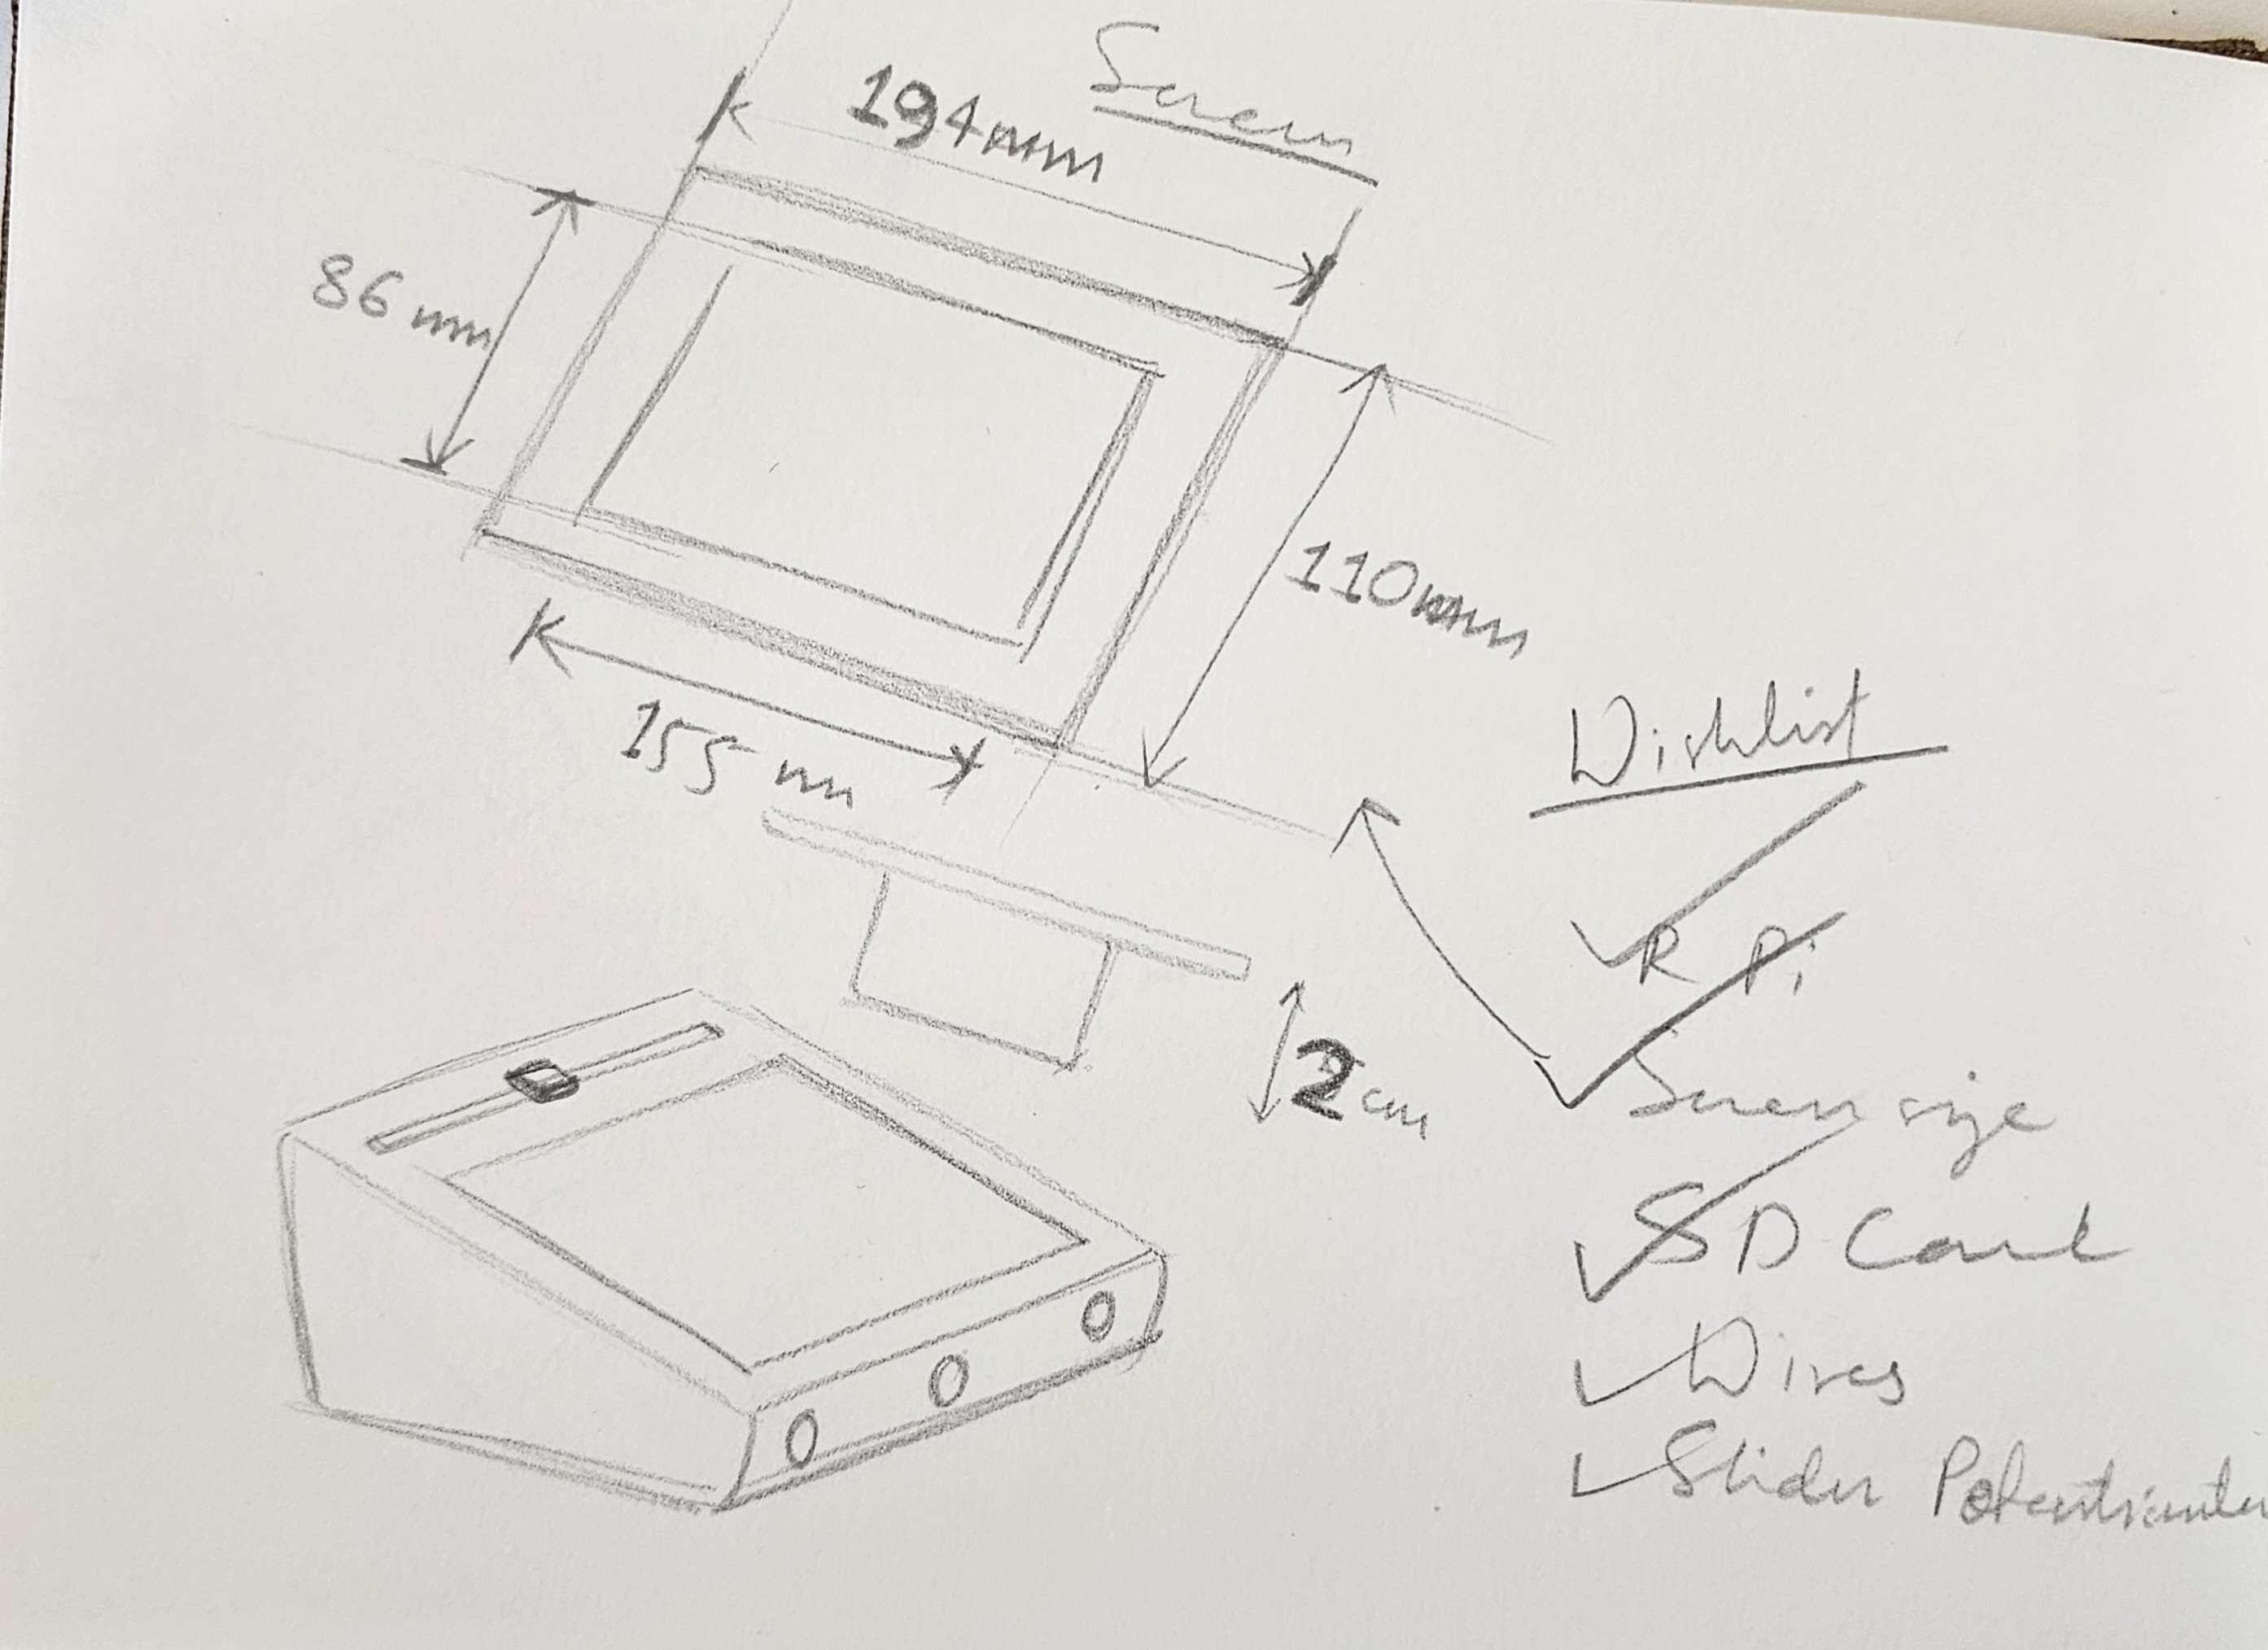 Screen
194mm
86 mm
110mm
155 mm
2cm
Wishlist
R Pi
Screen size
SD Card
Wires
Slider Potentiometer